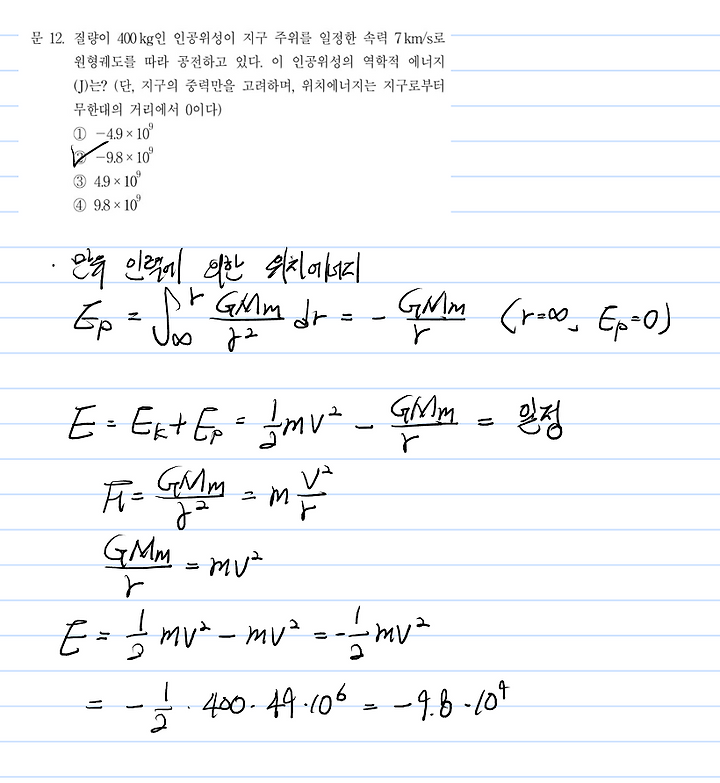 문 12. 질량이 400 kg인 인공위성이 지구 주위를 일정한 속력 7 km/s로
원형궤도를 따라 공전하고 있다. 이 인공위성의 역학적 에너지
(J)는? (단, 지구의 중력만을 고려하며, 위치에너지는 지구로부터
무한대의 거리에서 0이다)
① −4.9 × 10⁹
② −9.8 × 10⁹
③ 4.9 × 10⁹
④ 9.8 × 10⁹
· 만유 인력에 의한 위치에너지
E_p = ∫_∞^r GMm/r² dr = − GMm/r (r=∞, E_p=0)
E = E_k + E_p = 1/2 mv² − GMm/r = 일정
F = GMm/r² = m v²/r
GMm/r = mv²
E = 1/2 mv² − mv² = −1/2 mv²
= − 1/2 · 400 · 49 · 10⁶ = −9.8 · 10⁹